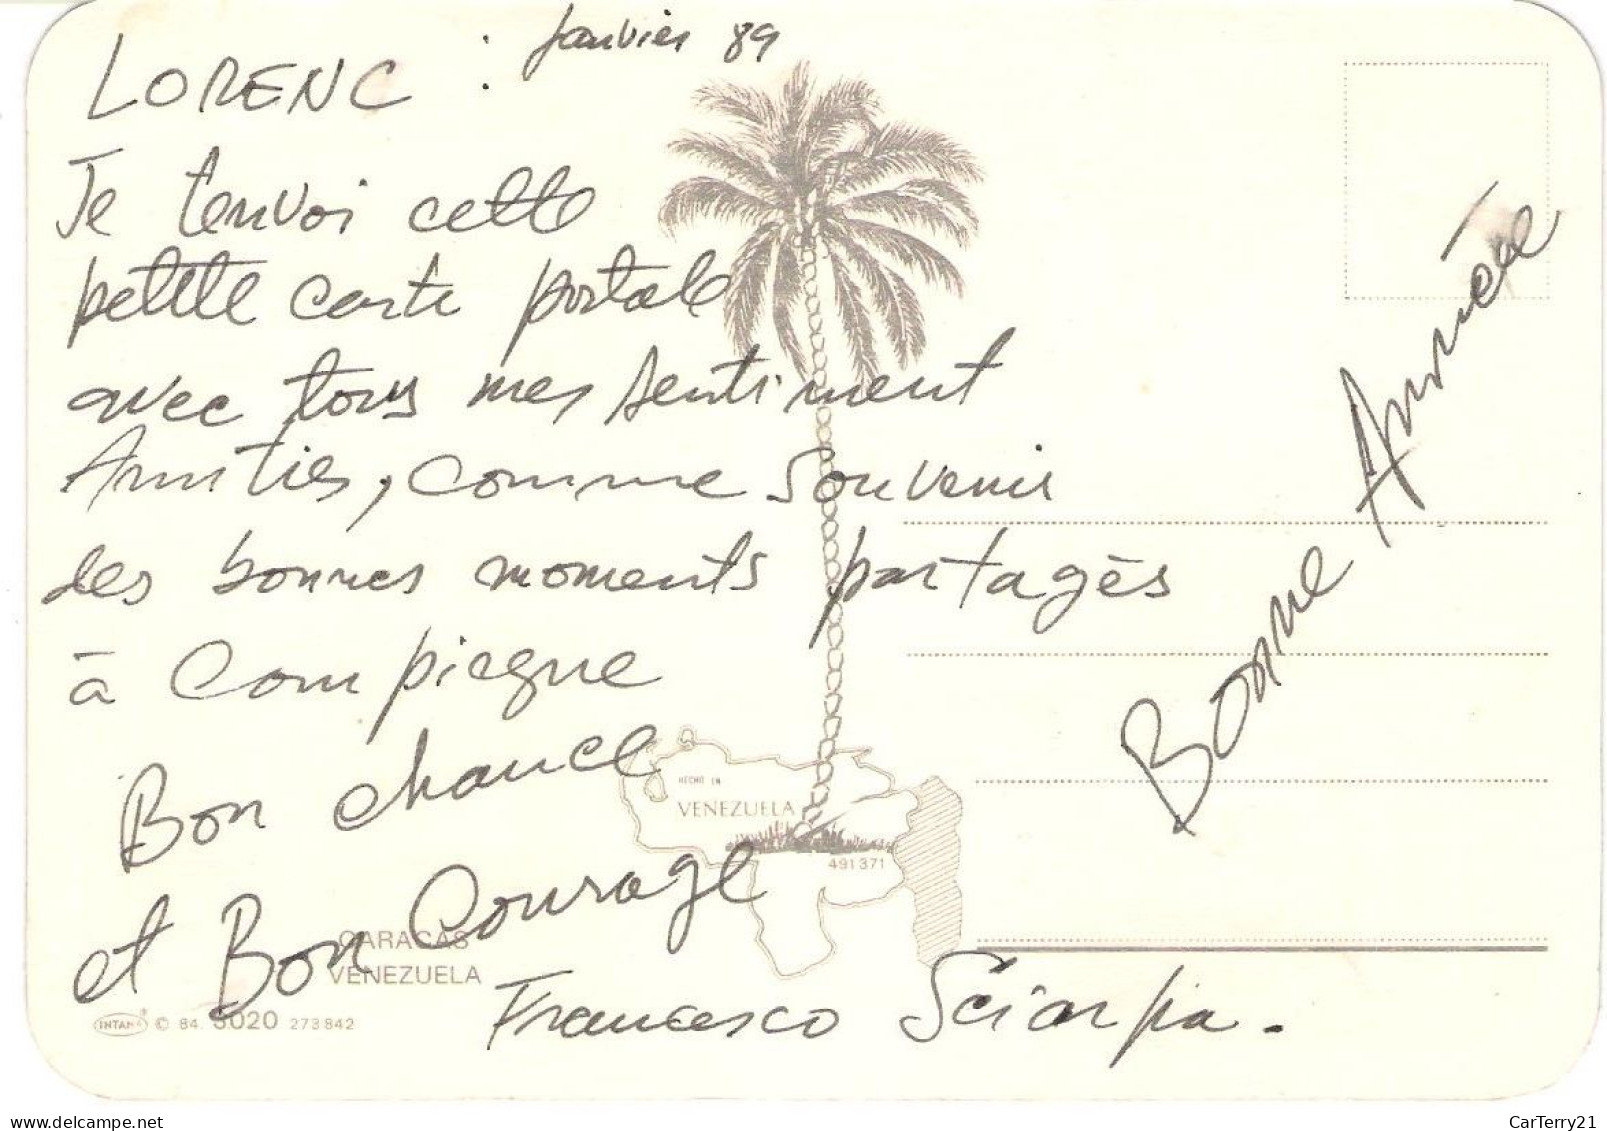 Janvier 89
LORENC :
Je tenvoi cette
petite carte postale
avec tous mes sentiment
Amities, comme souvenir
des bonnes moments partagès
à Compiegne
Bon chance
et Bon Courage
Francesco Sciarpa.
Bonne Année
HECHO EN
VENEZUELA
491371
CARACAS
VENEZUELA
INTANA ® © 84. 3020 273842
www.delcampe.net
CarTerry21